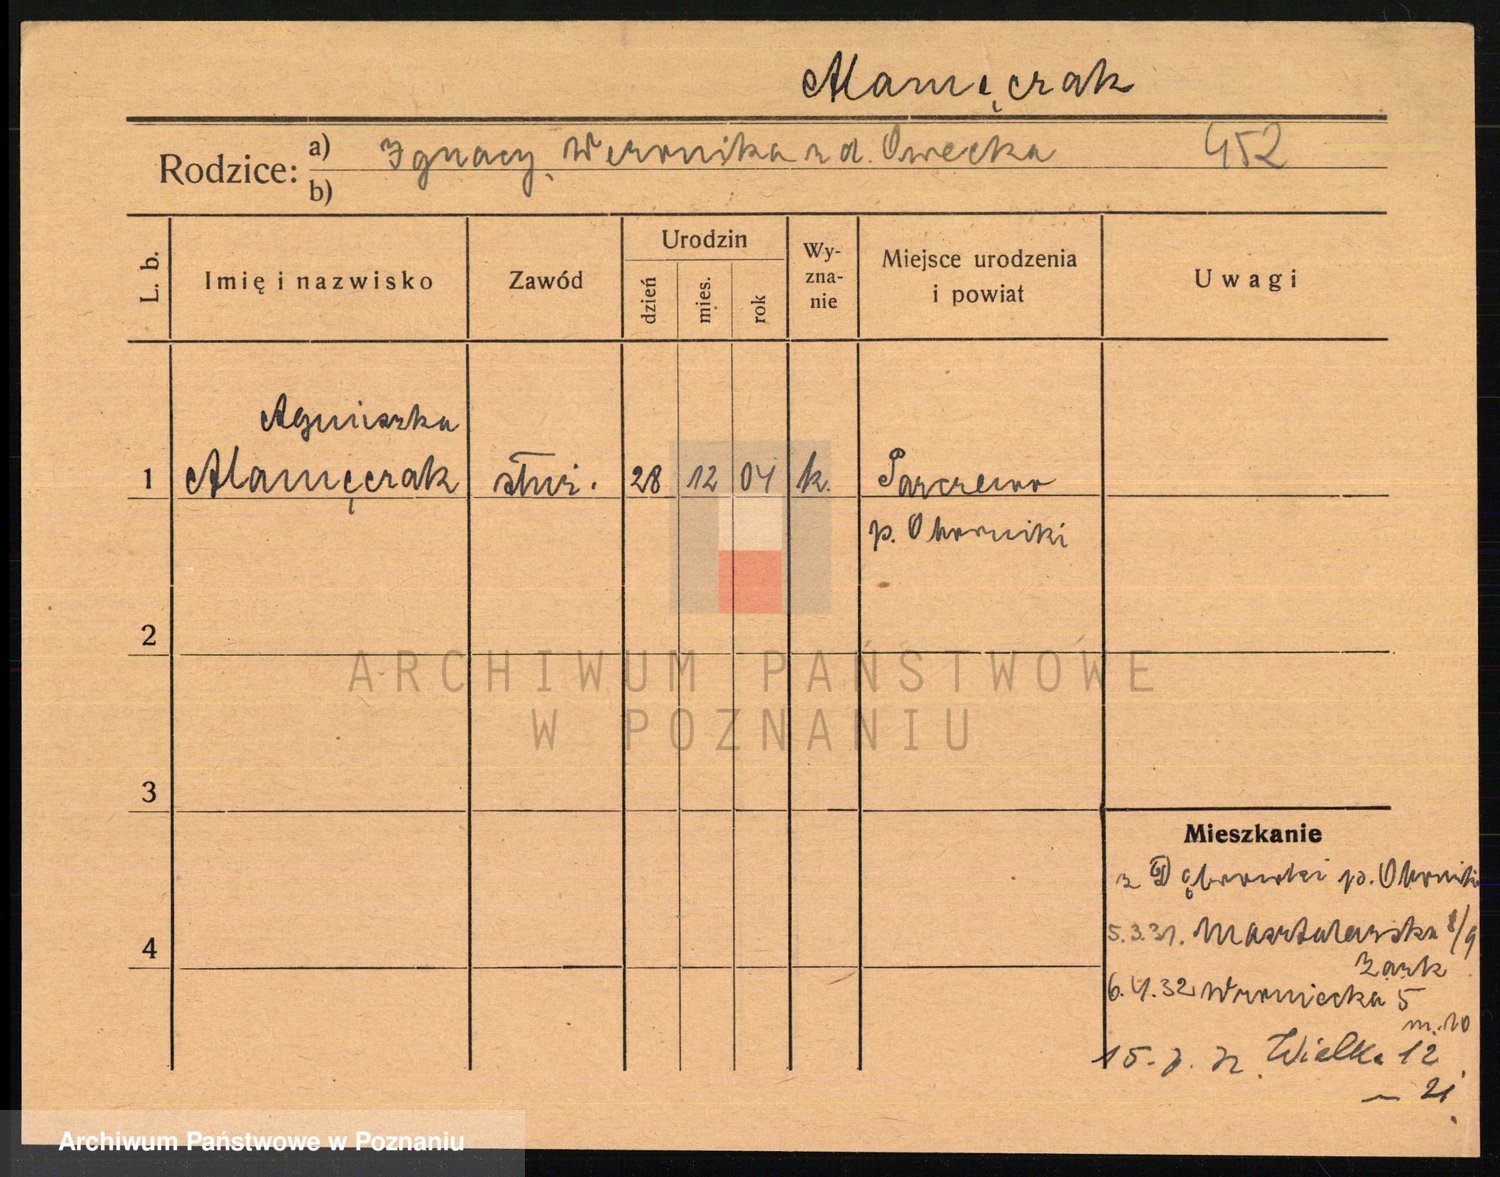 Adamięczak
Rodzice: a) Ignacy, Weronika z d. Owecka 452
b)
L. b.
Imię i nazwisko
Zawód
Urodzin
dzień
mies.
rok
Wy-
zna-
nie
Miejsce urodzenia
i powiat
Uwagi
Agnieszka
1 służ. 28 12 04 k. Parczewo
p. Oborniki
2
3
4
Mieszkanie
z Dąbrówki p. Oborniki
5.3.31. Masztalarska 8/9
6.4.32 Wroniecka 5
m. 10
Wielka 12
21
ARCHIWUM PAŃSTWOWE
W POZNANIU
Archiwum Państwowe w Poznaniu